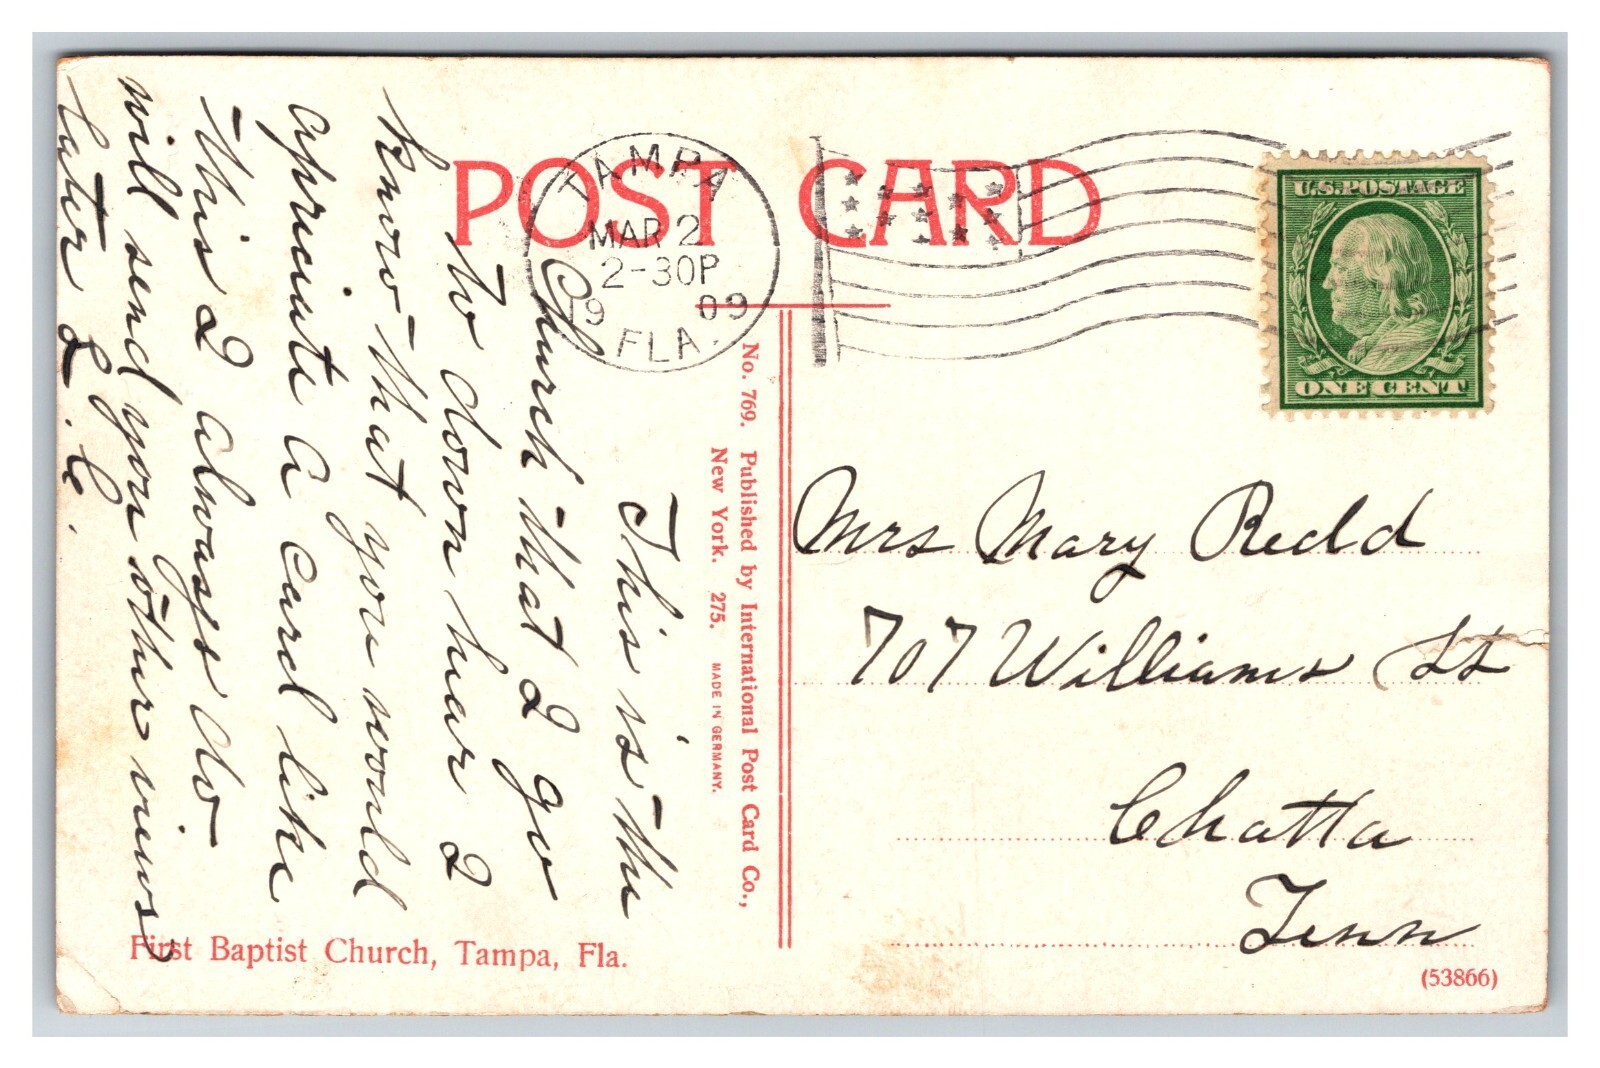 POST CARD
TAMPA
MAR 2
2-30P
19 09
FLA.
U.S. POSTAGE
ONE CENT
This is the
Church that I go
to down hear I
know that you would
apriciate a card like
this I always do
will send you other views
later L. C.
No. 769. Published by International Post Card Co.,
New York. 275. MADE IN GERMANY.
Mrs Mary Redd
707 Williams St
Chatta
Tenn
First Baptist Church, Tampa, Fla.
(53866)